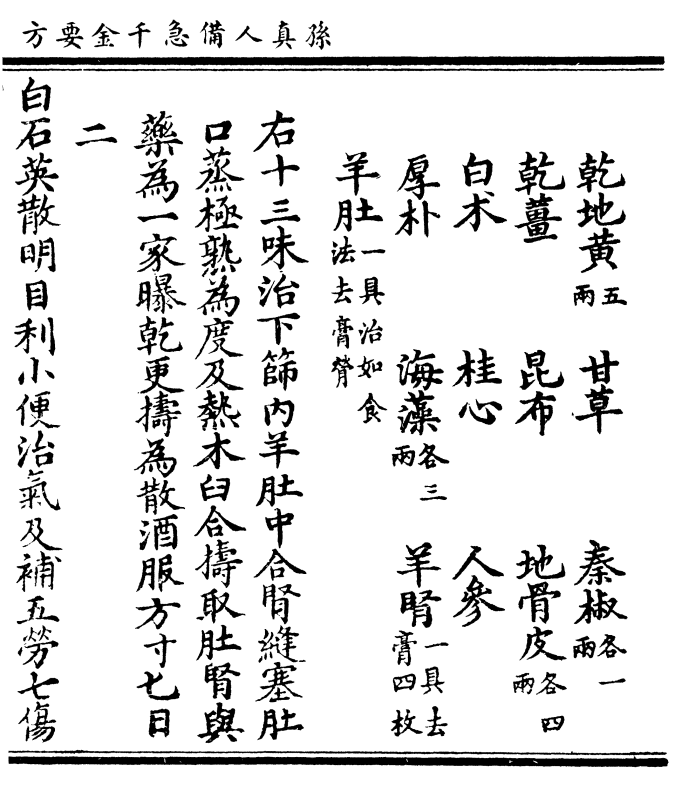 孫真人備急千金要方
乾地黃五兩 甘草 秦椒各一兩
乾薑 昆布 地骨皮各四兩
白朮 桂心 人參
厚朴 海藻各三兩 羊腎一具去膏四枚
羊肚一具治如食法去膏膋
右十三味治下篩內羊肚中合腎縫塞肚
口蒸極熟為度及熱木臼合擣取肚腎與
藥為一家曝乾更擣為散酒服方寸匕日
二
白石英散明目利小便治氣及補五勞七傷